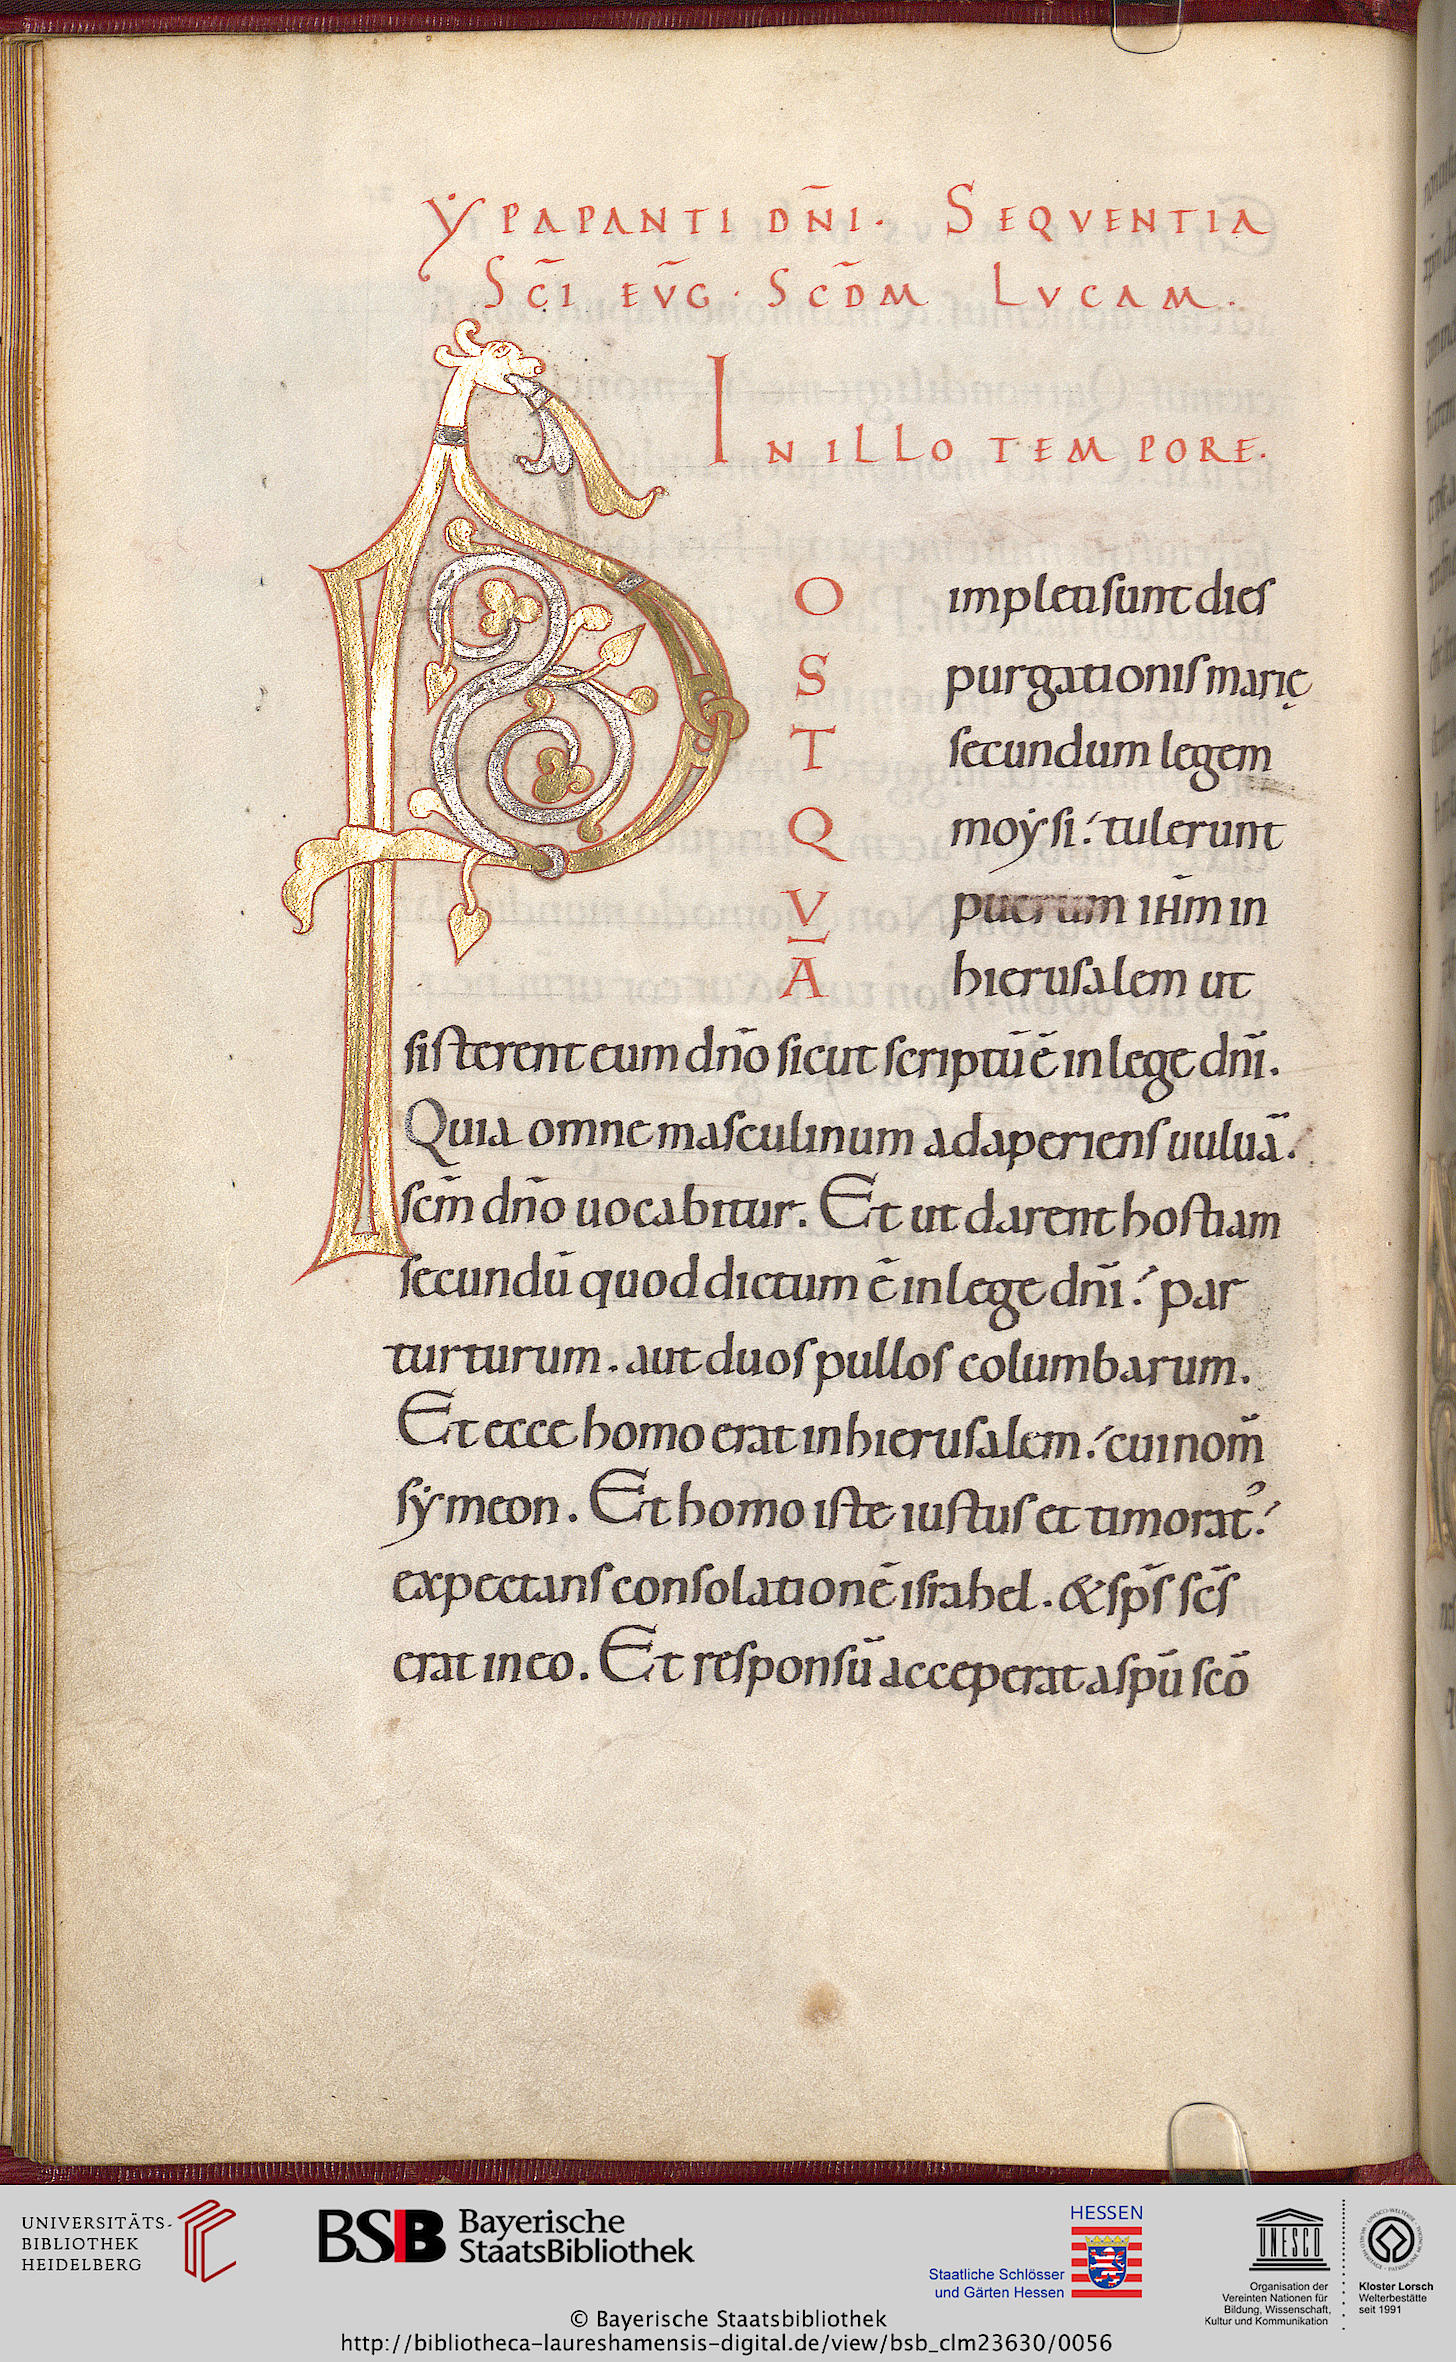 ẏPAPANTI DÑI. SEQVENTIA
SC̄I EṼG. SC̄DM LVCAM.
IN ILLO TEMPORE.
P
O impleti sunt dies
S purgationis marię
T secundum legem
Q moẏsi: tulerunt
V puerum ih̄m in
A hierusalem ut
sisterent eum dn̄o sicut scriptū ē in lege dn̄i.
Quia omne masculinum adaperiens uuluā.
sc̄m dn̄o uocabitur. Et ut darent hostiam
secundū quod dictum ē in lege dn̄i: par
turturum. aut duos pullos columbarum.
Et ecce homo erat in hierusalem: cui nom̄
sẏmeon. Et homo iste iustus et timorat᾿:
expectans consolationē israhel. & sp̄s sc̄s
erat in eo. Et responsū acceperat a spū scō
UNIVERSITÄTS-
BIBLIOTHEK
HEIDELBERG
BSB Bayerische
StaatsBibliothek
HESSEN
Staatliche Schlösser
und Gärten Hessen
UNESCO
Organisation der
Vereinten Nationen für
Bildung, Wissenschaft,
Kultur und Kommunikation
Kloster Lorsch
Welterbestätte
seit 1991
© Bayerische Staatsbibliothek
http://bibliotheca-laureshamensis-digital.de/view/bsb_clm23630/0056